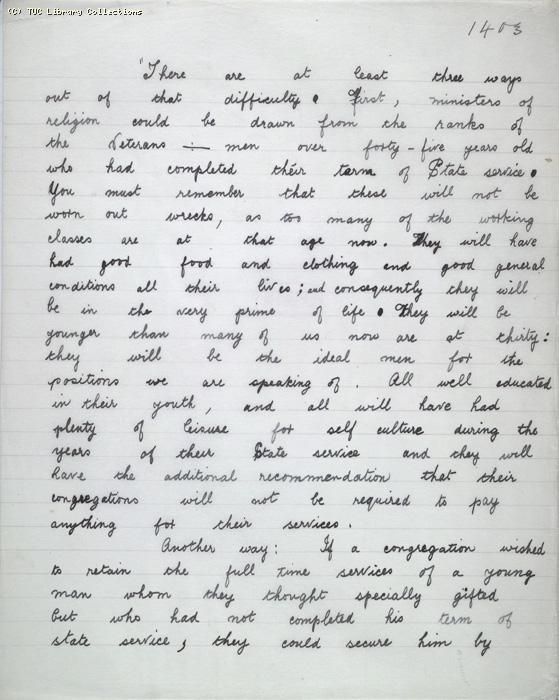 (C) TUC Library Collections
1403
"There are at least three ways
out of that difficulty. First, ministers of
religion could be drawn from the ranks of
the Veterans — men over forty-five years old
who had completed their term of State service.
You must remember that these will not be
worn out wrecks, as too many of the working
classes are at that age now. They will have
had good food and clothing and good general
conditions all their lives; and consequently they will
be in the very prime of life. They will be
younger than many of us now are at thirty:
they will be the ideal men for the
positions we are speaking of. All well educated
in their youth, and all will have had
plenty of leisure for self culture during the
years of their State service and they will
have the additional recommendation that their
congregations will not be required to pay
anything for their services.
Another way: If a congregation wished
to retain the full time services of a young
man whom they thought specially gifted
but who had not completed his term of
state service, they could secure him by